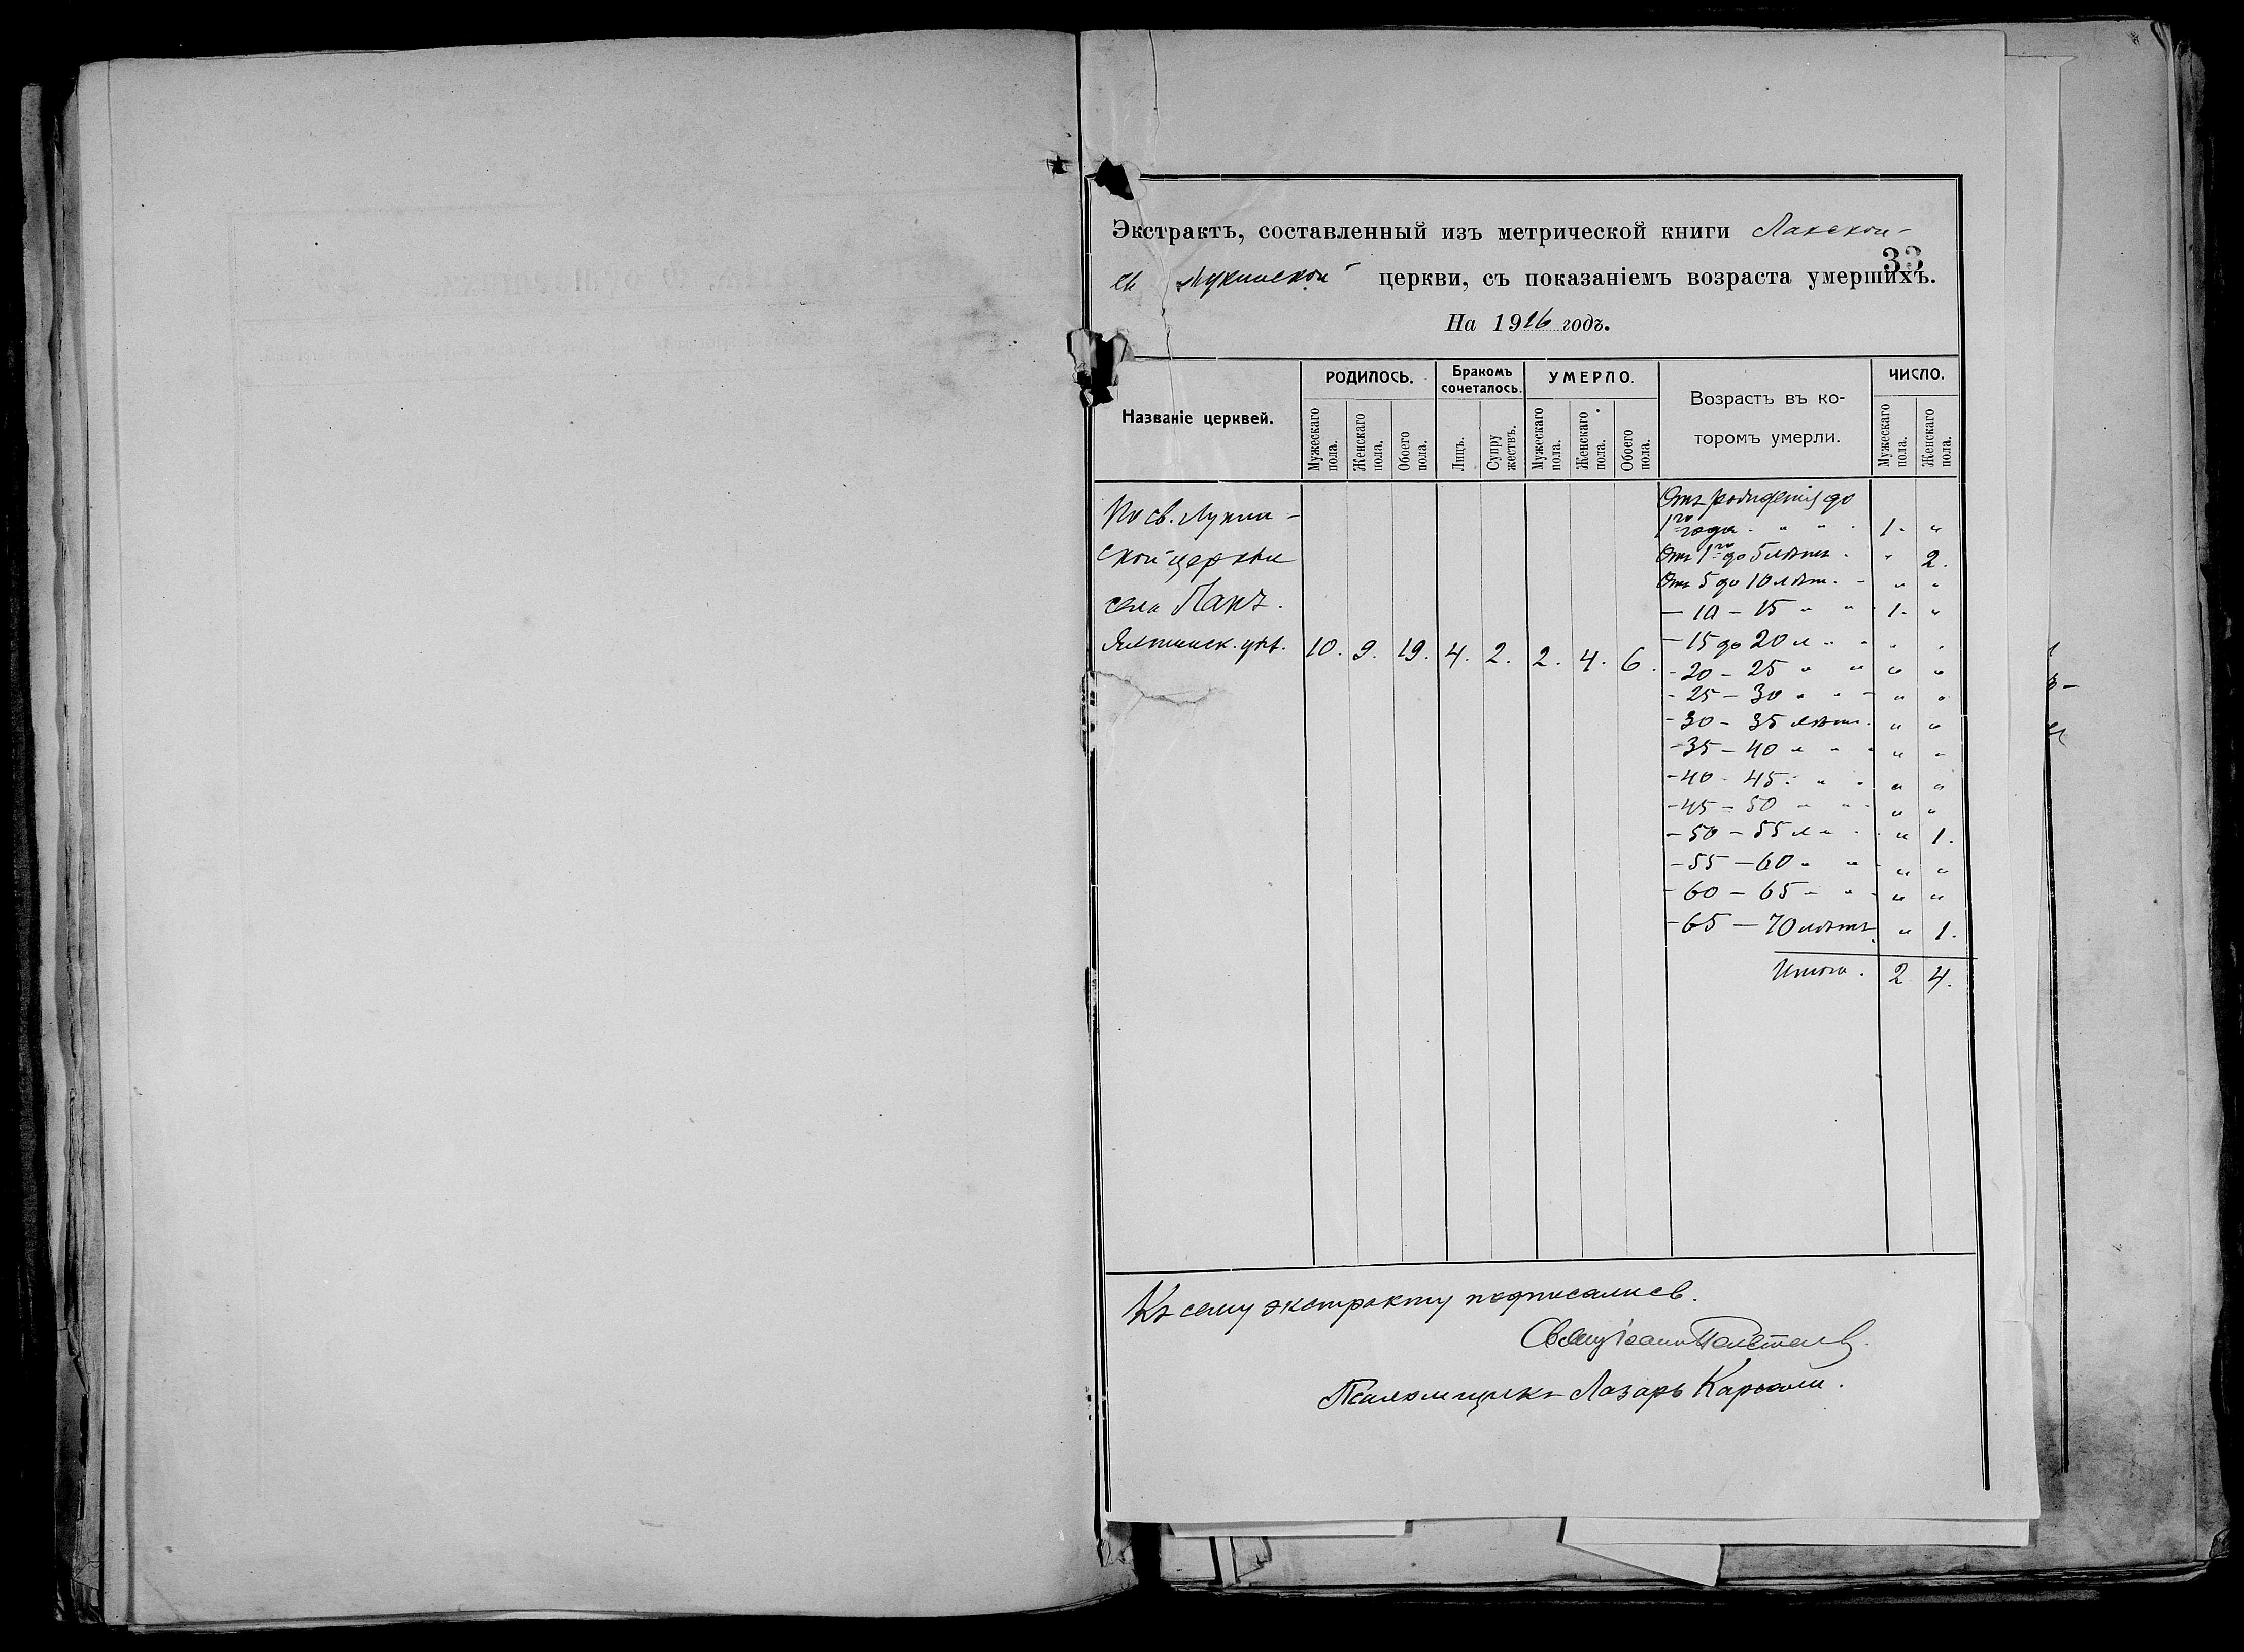 Экстрактъ, составленный изъ метрической книги Лакской
33
Лукинской церкви, съ показаніемъ возраста умершихъ.
На 1916 годъ.
Названіе церквей.
РОДИЛОСЬ.
Мужескаго пола.
Женскаго пола.
Обоего пола.
Бракомъ сочеталось.
Лицъ.
Супружествъ.
УМЕРЛО.
Мужескаго пола.
Женскаго пола.
Обоего пола.
Возрастъ въ которомъ умерли.
ЧИСЛО.
Мужескаго пола.
Женскаго пола.
По св. Лукин-
ской церкви
села Лакъ.
Ялтинск. уѣз. 10. 9. 19. 4. 2. 2. 4. 6.
Отъ рожденія до
1го года . " " . 1. "
Отъ 1го до 5 лѣтъ . " 2.
Отъ 5 до 10 лѣт. - " "
- 10 - 15 " " 1. "
- 15 до 20 л " " " "
- 20 - 25 " " " "
- 25 - 30 " " " "
- 30 - 35 лѣтъ. " "
- 35 - 40 " " " "
- 40 - 45 " " " "
- 45 - 50 " " " "
- 50 - 55 л " " 1.
- 55 - 60 " " " "
- 60 - 65 " " " "
- 65 - 70 лѣтъ " 1.
Итого. 2 4.
Къ сему экстракту подписались.
Іоаннъ
Псаломщикъ Лазарь